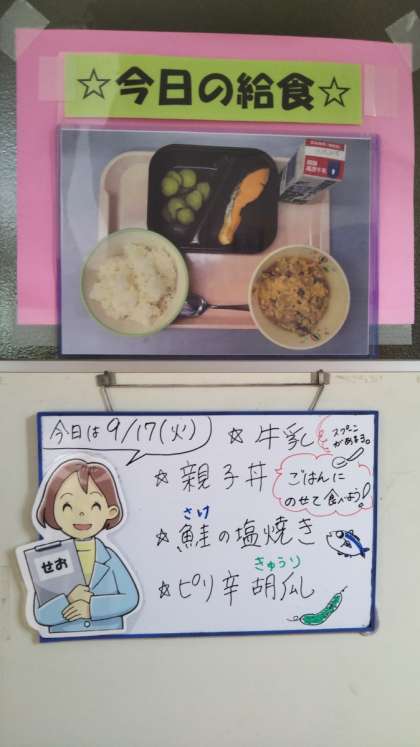 ☆今日の給食☆
今日は9/17(火)
☆牛乳
スプーンがあるョ。
☆親子丼
ごはんに
のせて食べよう!
さけ
☆鮭の塩焼き
きゅうり
☆ピリ辛胡瓜
せお